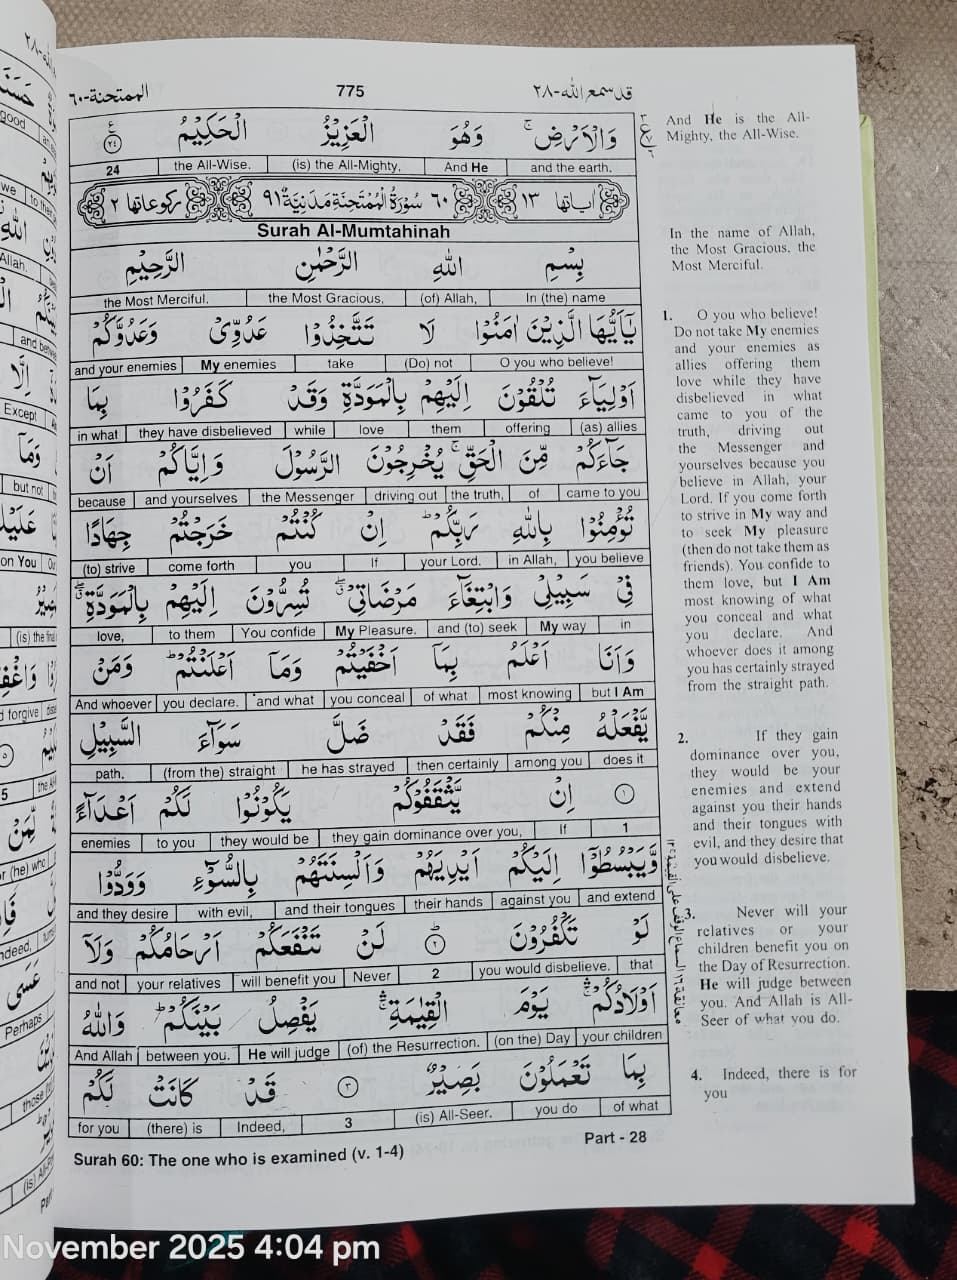 الممتحنة-٦٠ 775 قد سمع الله-٢٨
وَالْاَرْضِ ۚ وَهُوَ الْعَزِيْزُ الْحَكِيْمُ ٢٤
and the earth. And He (is) the All-Mighty, the All-Wise. 24
اٰیاتها ١٣ ٦٠ سُوْرَةُ الْمُمْتَحِنَةِ مَدَنِيَّةٌ ٩١ ركوعاتها ٢
Surah Al-Mumtahinah
بِسْمِ اللّٰهِ الرَّحْمٰنِ الرَّحِيْمِ
In (the) name (of) Allah, the Most Gracious, the Most Merciful.
يٰٓاَيُّهَا الَّذِيْنَ اٰمَنُوْا لَا تَتَّخِذُوْا عَدُوِّىْ وَعَدُوَّكُمْ
O you who believe! (Do) not take My enemies and your enemies
اَوْلِيَآءَ تُلْقُوْنَ اِلَيْهِمْ بِالْمَوَدَّةِ وَقَدْ كَفَرُوْا بِمَا
(as) allies offering them love while they have disbelieved in what
جَآءَكُمْ مِّنَ الْحَقِّ ۚ يُخْرِجُوْنَ الرَّسُوْلَ وَاِيَّاكُمْ اَنْ
came to you of the truth, driving out the Messenger and yourselves because
تُؤْمِنُوْا بِاللّٰهِ رَبِّكُمْ ؕ اِنْ كُنْتُمْ خَرَجْتُمْ جِهَادًا
you believe in Allah, your Lord. If you come forth (to) strive
فِىْ سَبِيْلِىْ وَابْتِغَآءَ مَرْضَاتِىْ ۖ تُسِرُّوْنَ اِلَيْهِمْ بِالْمَوَدَّةِ ۖ
in My way and (to) seek My Pleasure. You confide to them love,
وَاَنَا اَعْلَمُ بِمَآ اَخْفَيْتُمْ وَمَآ اَعْلَنْتُمْ ؕ وَمَنْ
but I Am most knowing of what you conceal and what you declare. And whoever
يَّفْعَلْهُ مِنْكُمْ فَقَدْ ضَلَّ سَوَآءَ السَّبِيْلِ
does it among you then certainly he has strayed (from the) straight path.
١ اِنْ يَّثْقَفُوْكُمْ يَكُوْنُوْا لَكُمْ اَعْدَآءً
1 If they gain dominance over you, they would be to you enemies
وَّيَبْسُطُوْٓا اِلَيْكُمْ اَيْدِيَهُمْ وَاَلْسِنَتَهُمْ بِالسُّوْٓءِ وَوَدُّوْا
and extend against you their hands and their tongues with evil, and they desire
لَوْ تَكْفُرُوْنَ ٢ لَنْ تَنْفَعَكُمْ اَرْحَامُكُمْ وَلَآ
that you would disbelieve. 2 Never will benefit you your relatives and not
اَوْلَادُكُمْ ۛ يَوْمَ الْقِيٰمَةِ ۛ يَفْصِلُ بَيْنَكُمْ ؕ وَاللّٰهُ
your children (on the) Day (of) the Resurrection. He will judge between you. And Allah
بِمَا تَعْمَلُوْنَ بَصِيْرٌ ٣ قَدْ كَانَتْ لَكُمْ
of what you do (is) All-Seer. 3 Indeed, (there) is for you
And He is the All-
Mighty, the All-Wise.
In the name of Allah,
the Most Gracious, the
Most Merciful.
1. O you who believe!
Do not take My enemies
and your enemies as
allies offering them
love while they have
disbelieved in what
came to you of the
truth, driving out
the Messenger and
yourselves because you
believe in Allah, your
Lord. If you come forth
to strive in My way and
to seek My pleasure
(then do not take them as
friends). You confide to
them love, but I Am
most knowing of what
you conceal and what
you declare. And
whoever does it among
you has certainly strayed
from the straight path.
2. If they gain
dominance over you,
they would be your
enemies and extend
against you their hands
and their tongues with
evil, and they desire that
you would disbelieve.
3. Never will your
relatives or your
children benefit you on
the Day of Resurrection.
He will judge between
you. And Allah is All-
Seer of what you do.
4. Indeed, there is for
you
Surah 60: The one who is examined (v. 1-4) Part - 28
good
we
to them
Allah.
and between
Except
but not
on You
(is) the final
forgive
5
(he) who
Indeed,
Perhaps
those
November 2025 4:04 pm